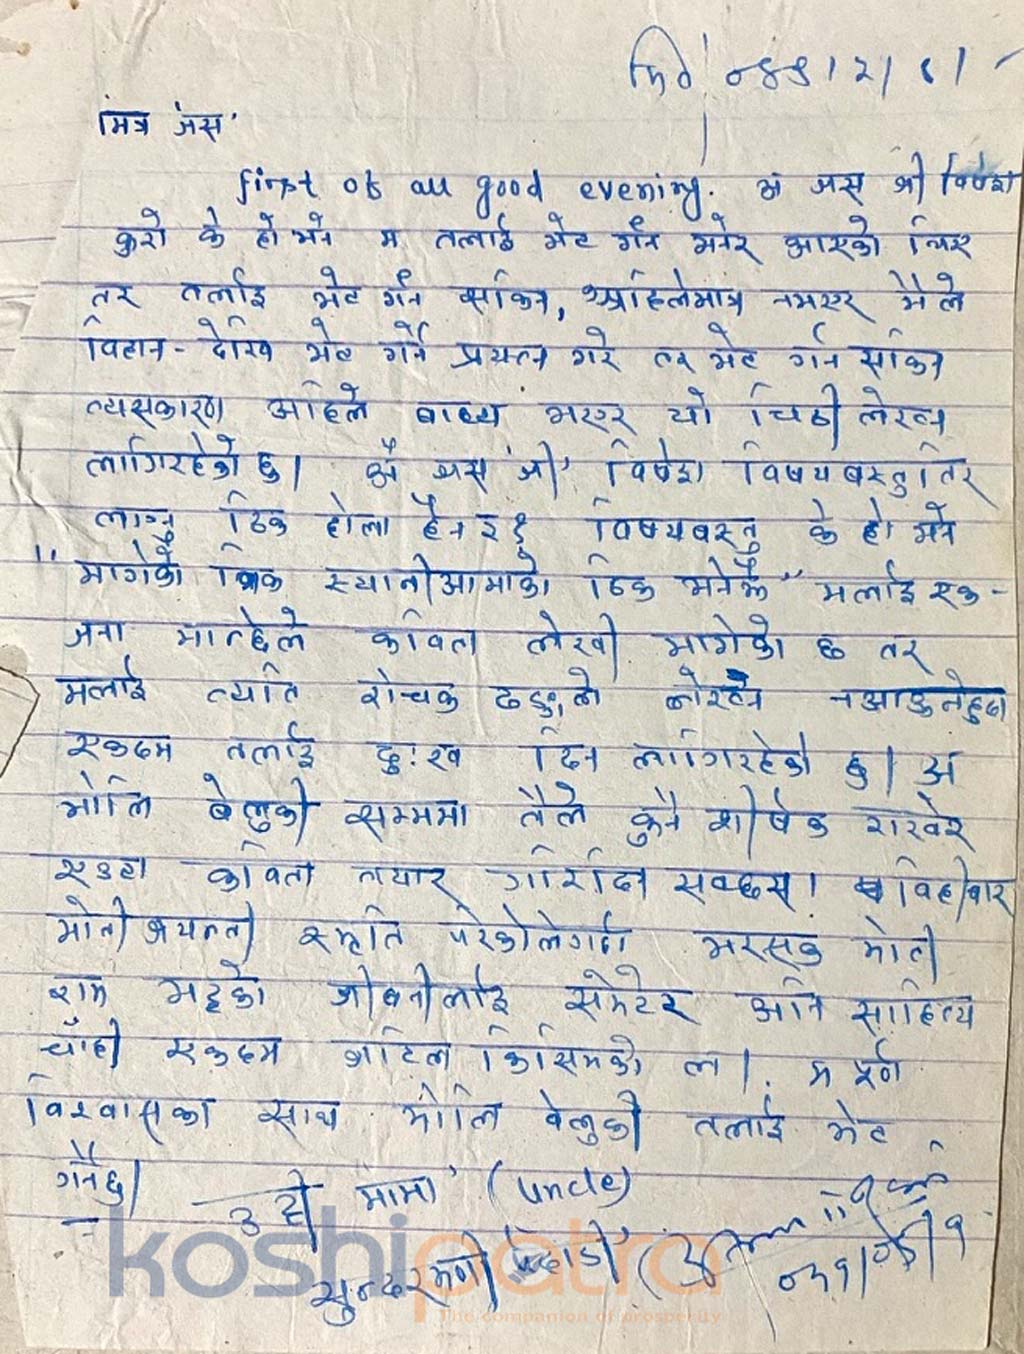 मिति ०४४।२।८।
मित्र जस'
first of all good evening. अं जस जी विशेष
कुरो के हो भने म तलाई भेट गर्न भनेर आएको थिए
तर तलाई भेट गर्न सकिन, अहिलेमात्र नभएर मैले
विहान-देखि भेट गर्ने प्रयत्न गरे तर भेट गर्न सकिन
त्यसकारण अहिले वाध्य भएर यो चिठी लेख्न
लागिरहेको छु। अँ जस 'जी' विशेष विषयबस्तुतिर
लाग्नु ठिक होला हैन र? विषयबस्तु के हो भने
"मागेको स्यानीआमाको ठिक भनेझैं" मलाई एक-
जना मान्छेले कविता लेखी मागेको छ तर
मलाई त्यति रोचक ढङ्गले लेख्न नआउनेहुदा
एकदम तलाई दु:ख दिन लागिरहेको छु। अँ
भोलि बेलुकी सम्ममा तैले कुनै शीर्षक राखेर
एउटा कविता तयार गरिदिन सक्छस। विहीबार
मोती जयन्ती स्मृति परेकोलेगर्दा भरसक मोती
राम भट्टको जीवनीलाई समेटेर अनि साहित्य
चाँही एकदम जटिल किसिमको ल। म पूर्ण
विश्वासका साथ भोलि बेलुकी तलाई भेट
गर्नेछु।
उही मामा' (uncle)
सुन्दरमणी पहाडी
koshipatra
The companion of prosperity